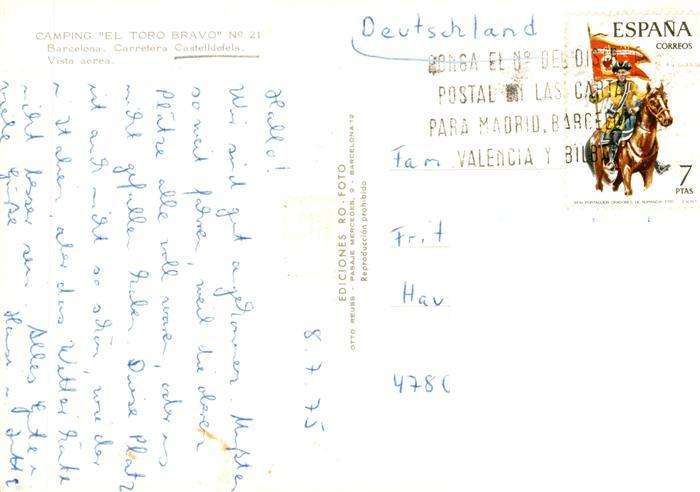 CAMPING "EL TORO BRAVO" Nº. 21
Barcelona. Carretera Castelldefels.
Vista aerea.
8.7.75
Hallo!
Wir sind gut angekommen. Mußten
so weit fahren, weil die oberen
Plätze alle voll waren, oder uns
nicht gefallen haben. Dieser Platz
ist auch nicht so schön, wie der
in Italien, aber das Wetter könnte
nicht besser sein. Alles Gute u
viele Grüße
Hansi u
EDICIONES RO-FOTO
OTTO REUSS - PASAJE MERCEDES, 9 - BARCELONA-12
Reproducción prohibida
Deutschland
PONGA EL Nº DEL DIS
POSTAL EN LAS CARTA
PARA MADRID, BARCE
VALENCIA Y BILB
ESPAÑA
CORREOS
7
PTAS
Fam
Frit
Hav
478